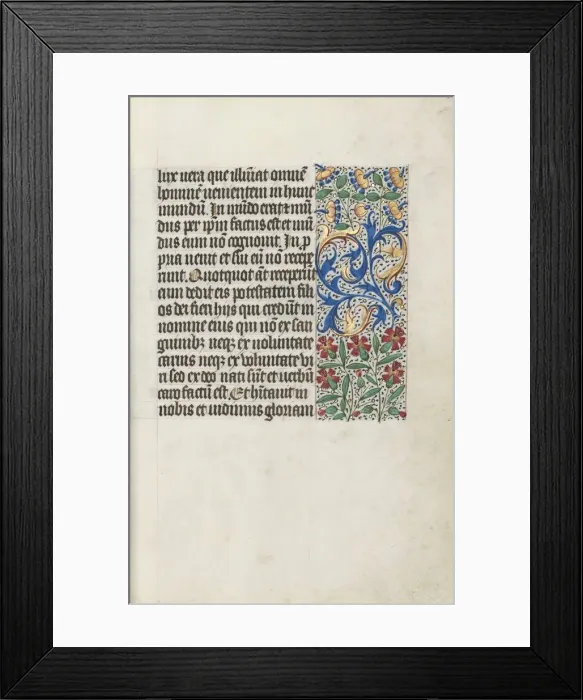 lux uera que illũat omnẽ
hominẽ uenientem in hunc
mundũ. In mũdo erat ⁊ mũ
dus per ip̃m factus est et mũ
dus eum nõ cognouit. In p
pria uenit et sui eũ nõ recepe
runt. Quotquot aũt receperũt
eum dedit eis potestatem fili
os dei fieri hijs qui credũt in
nomine eius qui nõ ex san
guinibꝫ neqꝫ ex uoluntate
carnis neqꝫ ex uoluntate vi
ri sed ex deo nati sũt et uerbũ
caro factũ est. Et hĩtauit in
nobis et uidimus gloriam